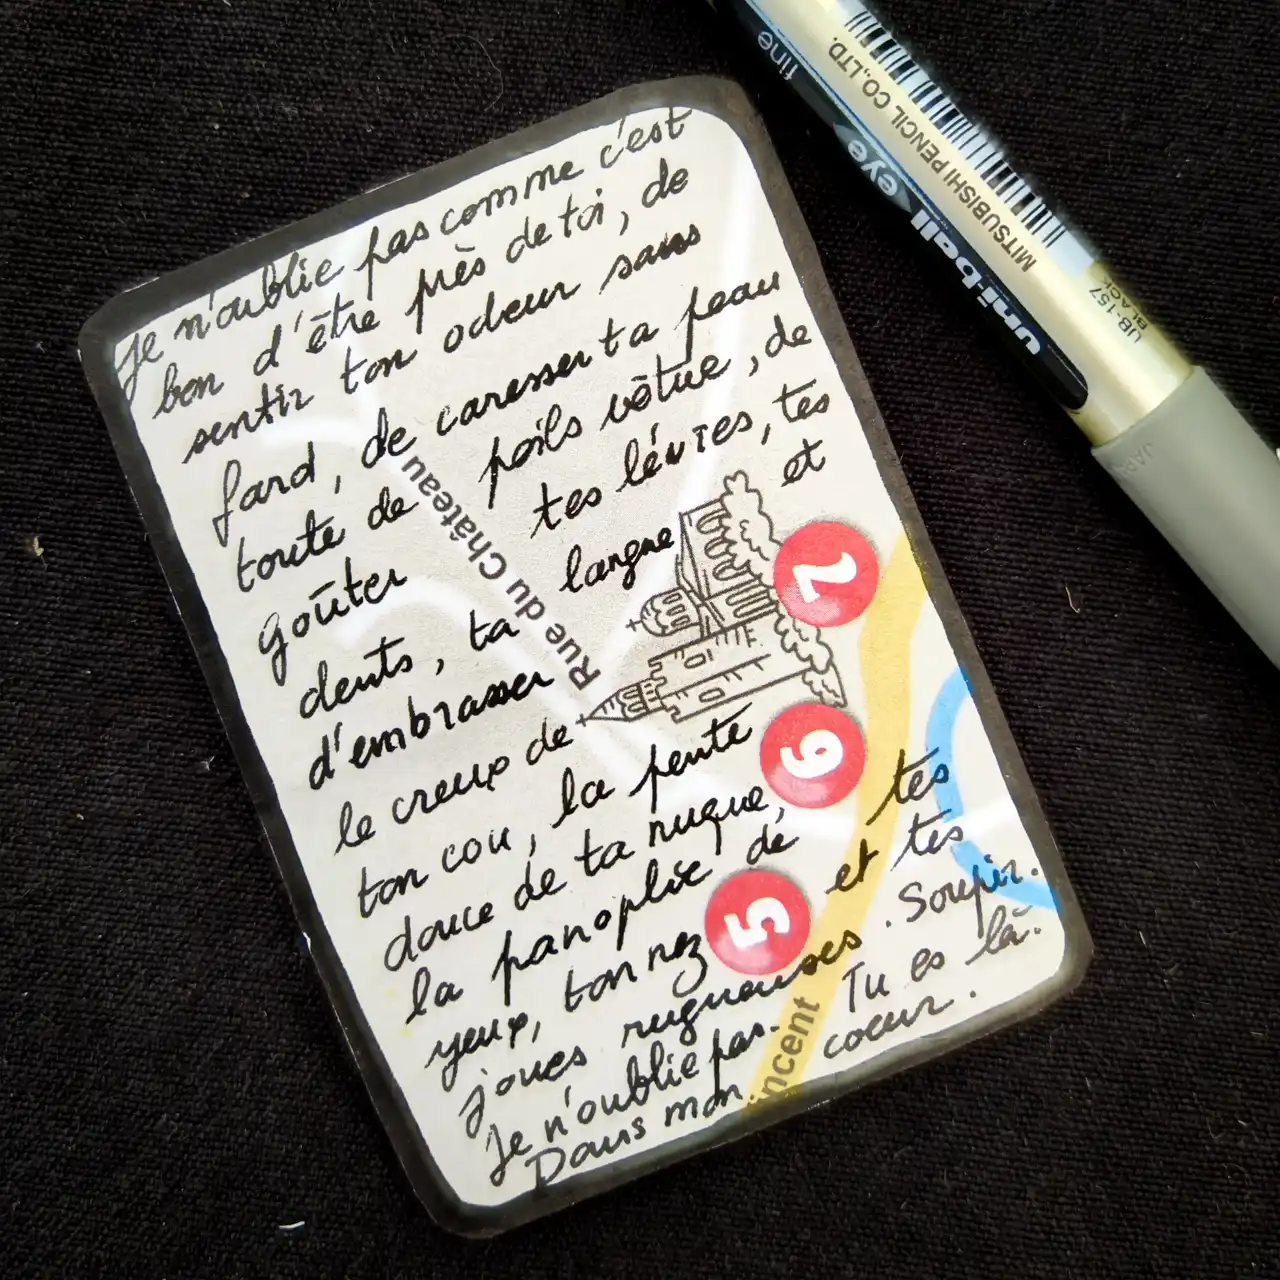 je n'oublie pas comme c'est
bon d'être près de toi, de
sentir ton odeur sans
fard, de caresser ta peau
toute de poils vêtue, de
goûter tes lèvres, tes
dents, ta langue et
d'embrasser
le creux de
ton cou, la pente
douce de ta nuque,
la panoplie de
yeux, ton nez et tes
joues rugueuses et tes
je n'oublie pas. Soupir.
Tu es là.
Dans mon coeur.
Rue du Château
2
6
5
ncent
fine
eye
uni-ball
MITSUBISHI PENCIL CO.,LTD.
UB-157
BLACK
JAPAN